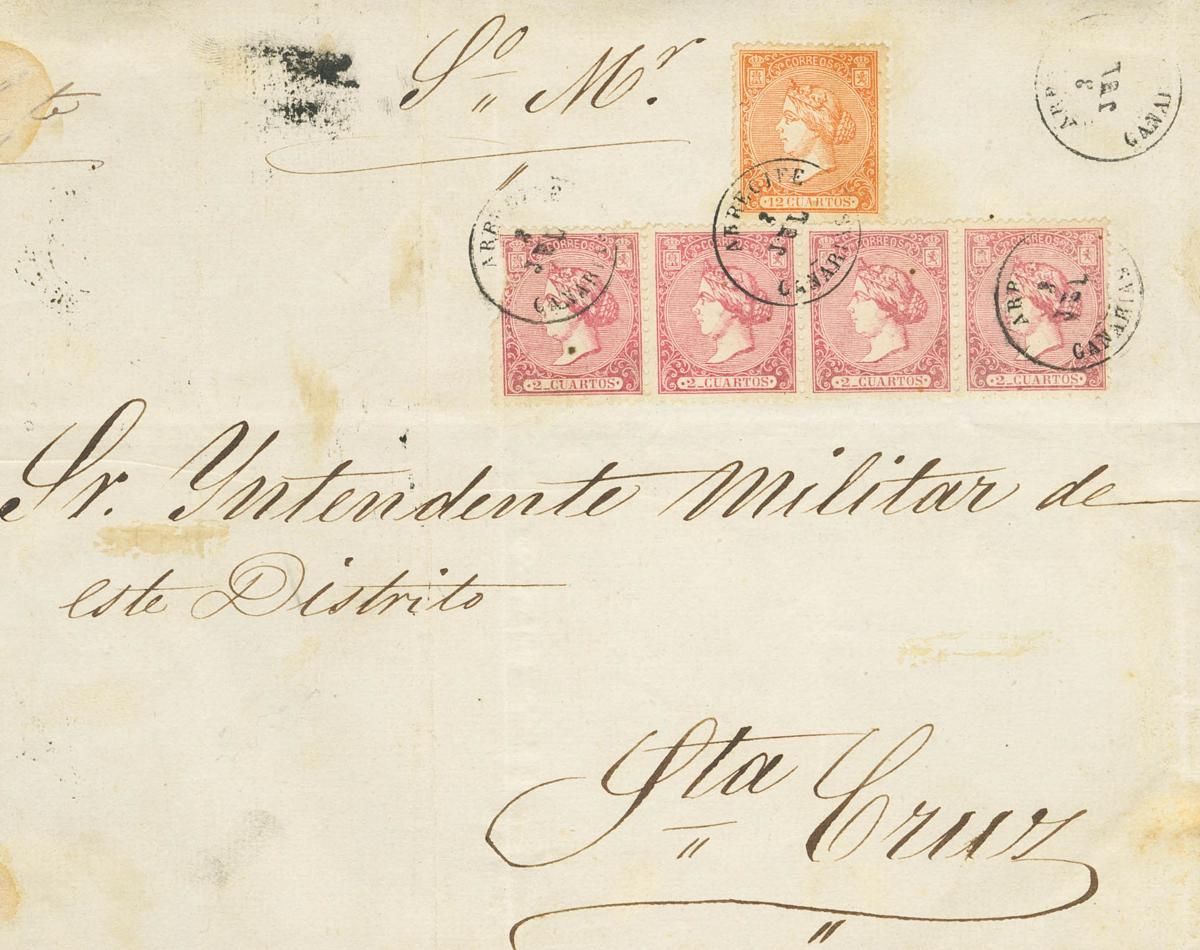 So Mr.
te
CORREOS
12 CUARTOS
ARRECIFE
2
JUL
CANARIAS
CORREOS
2 CUARTOS
CORREOS
2 CUARTOS
CORREOS
2 CUARTOS
CORREOS
2 CUARTOS
ARRE
JUL
CANAR
ARR
JUL
CANARIAS
ARR
JUL
CANA
Sr. Yntendente Militar de
este Distrito
Sta Cruz